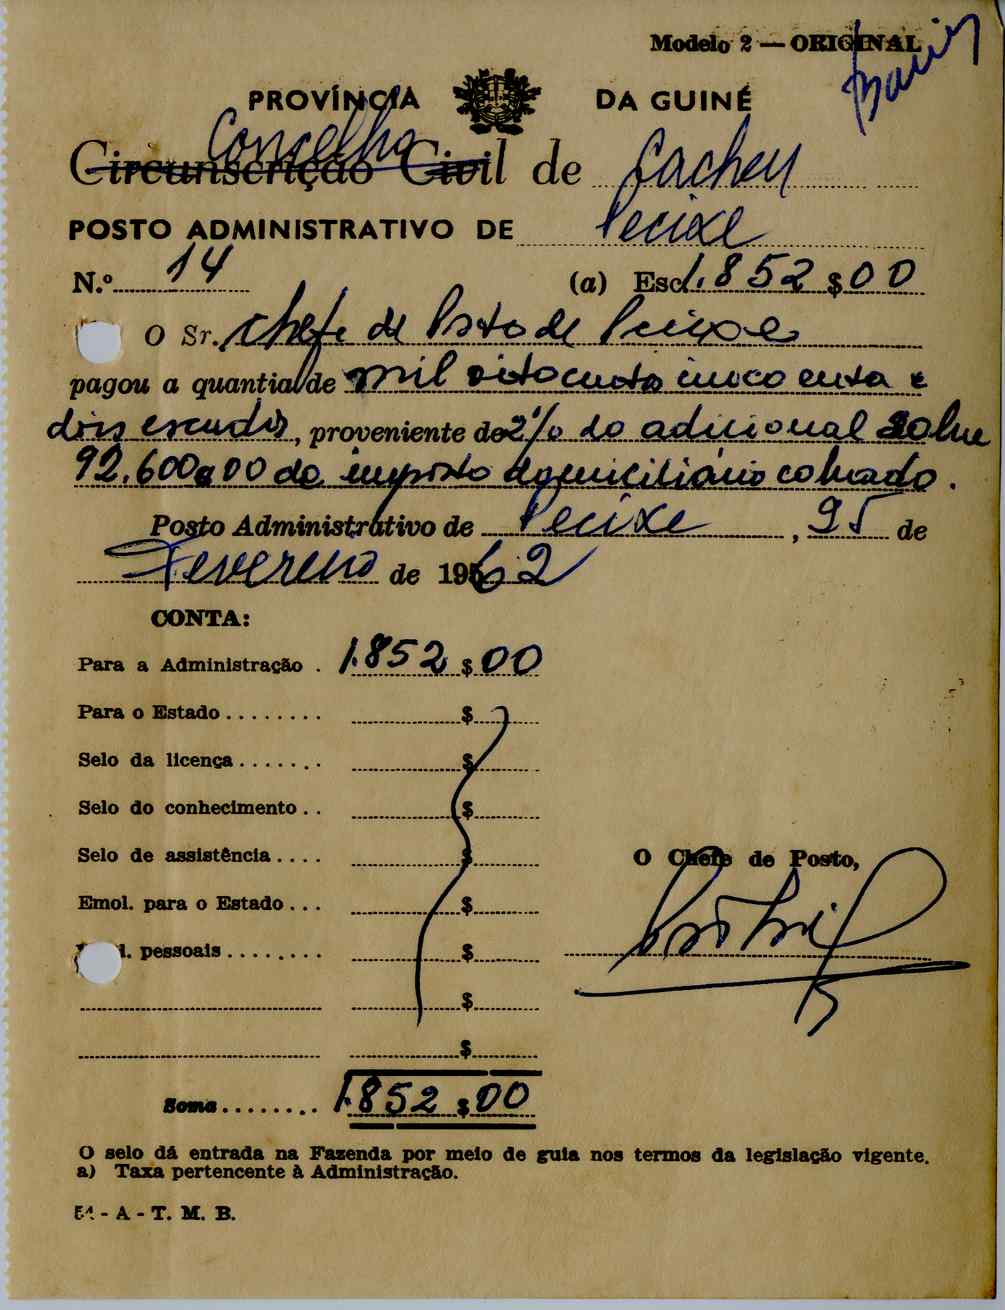 Modelo 2 — ORIGINAL
PROVÍNCIA DA GUINÉ
Concelho
Circunscrição Civil de Cacheu
POSTO ADMINISTRATIVO DE Pecixe
N.º 14 (a) Esc. 1.852$00
O Sr. Chefe de Posto de Pecixe
pagou a quantia de mil oitocentos cincoenta e
dois escudos, proveniente de 2% do adicional sobre
92.600$00 do imposto domiciliário cobrado.
Posto Administrativo de Pecixe, 25 de
Fevereiro de 1962
CONTA:
Para a Administração . 1.852$00
Para o Estado ........ $
Selo da licença ....... $
Selo do conhecimento .. $
Selo de assistência .... $
O Chefe de Posto,
Emol. para o Estado ... $
l. pessoais ........ $
$
$
Soma ........ 1.852$00
O selo dá entrada na Fazenda por meio de guia nos termos da legislação vigente.
a) Taxa pertencente à Administração.
- A - T. M. B.